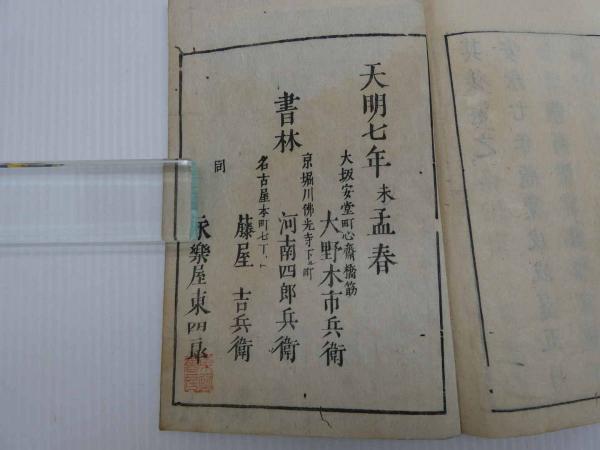 天明七年未孟春
書林
大坂安堂町心斎橋筋
大野木市兵衛
京堀川佛光寺下ル町
河南四郎兵衛
名古屋本町七丁
藤屋吉兵衛
同
永樂屋東四郎